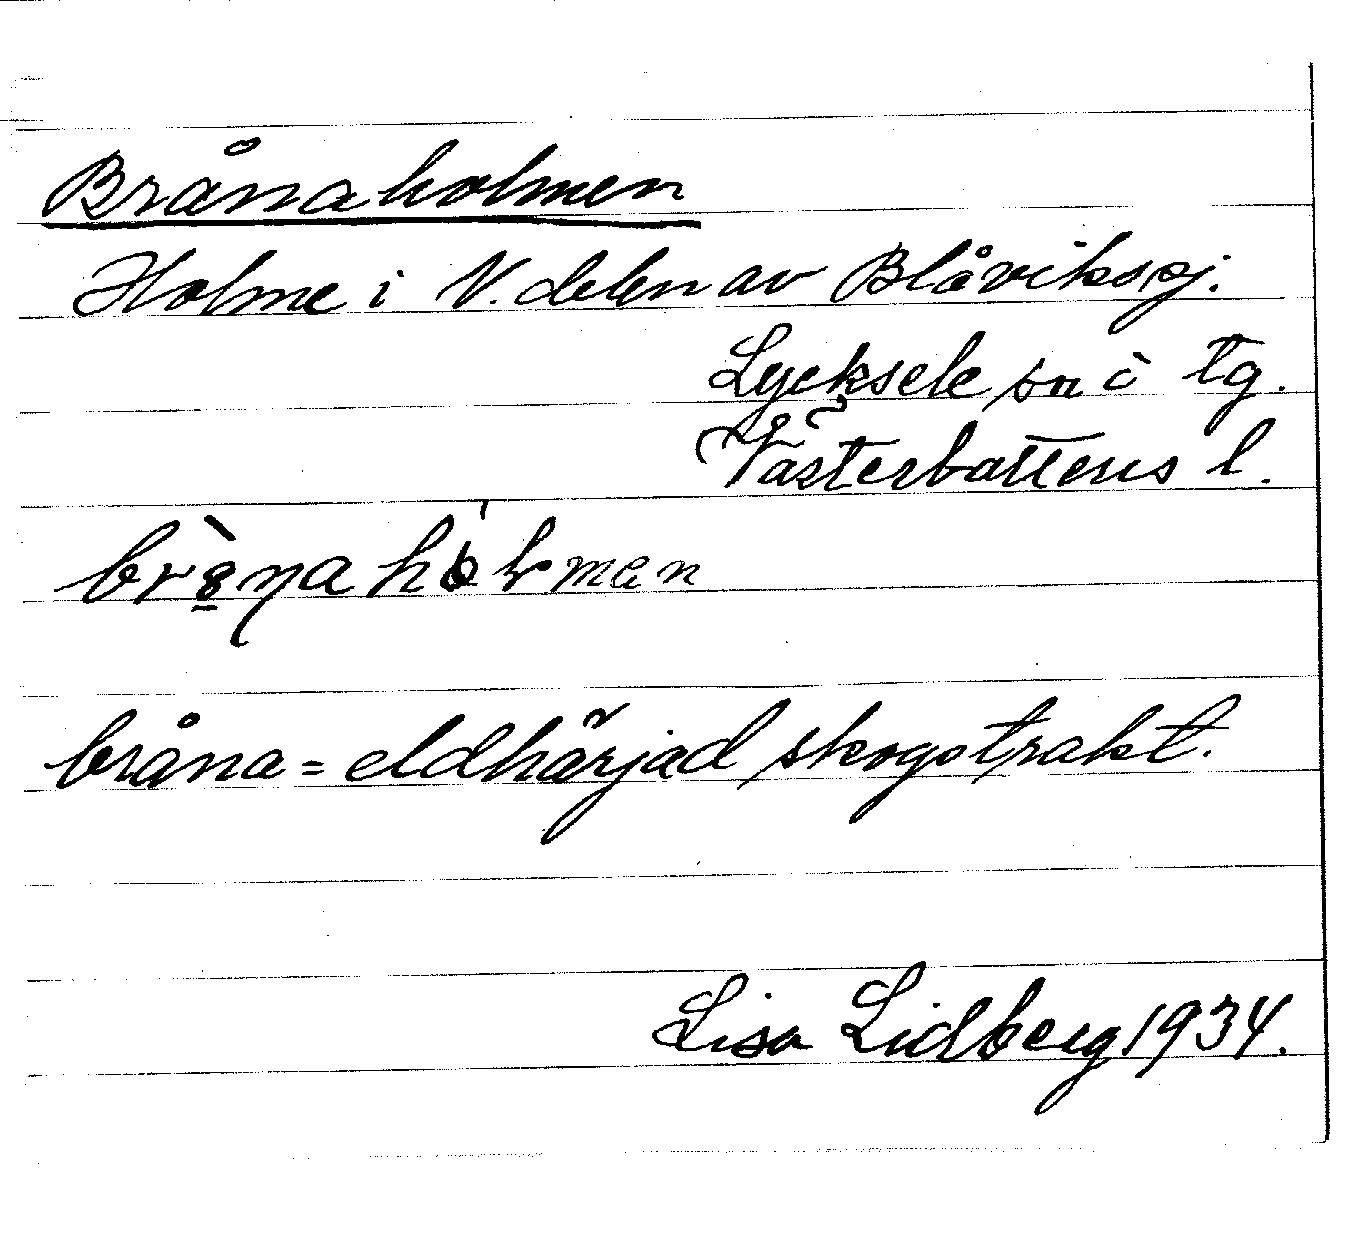 Brånaholmen
Holme i V. delen av Blåviksj.
Lycksele sn o tg.
Västerbottens l.
bråna = eldhärjad skogstrakt.
Lisa Lidberg 1934.